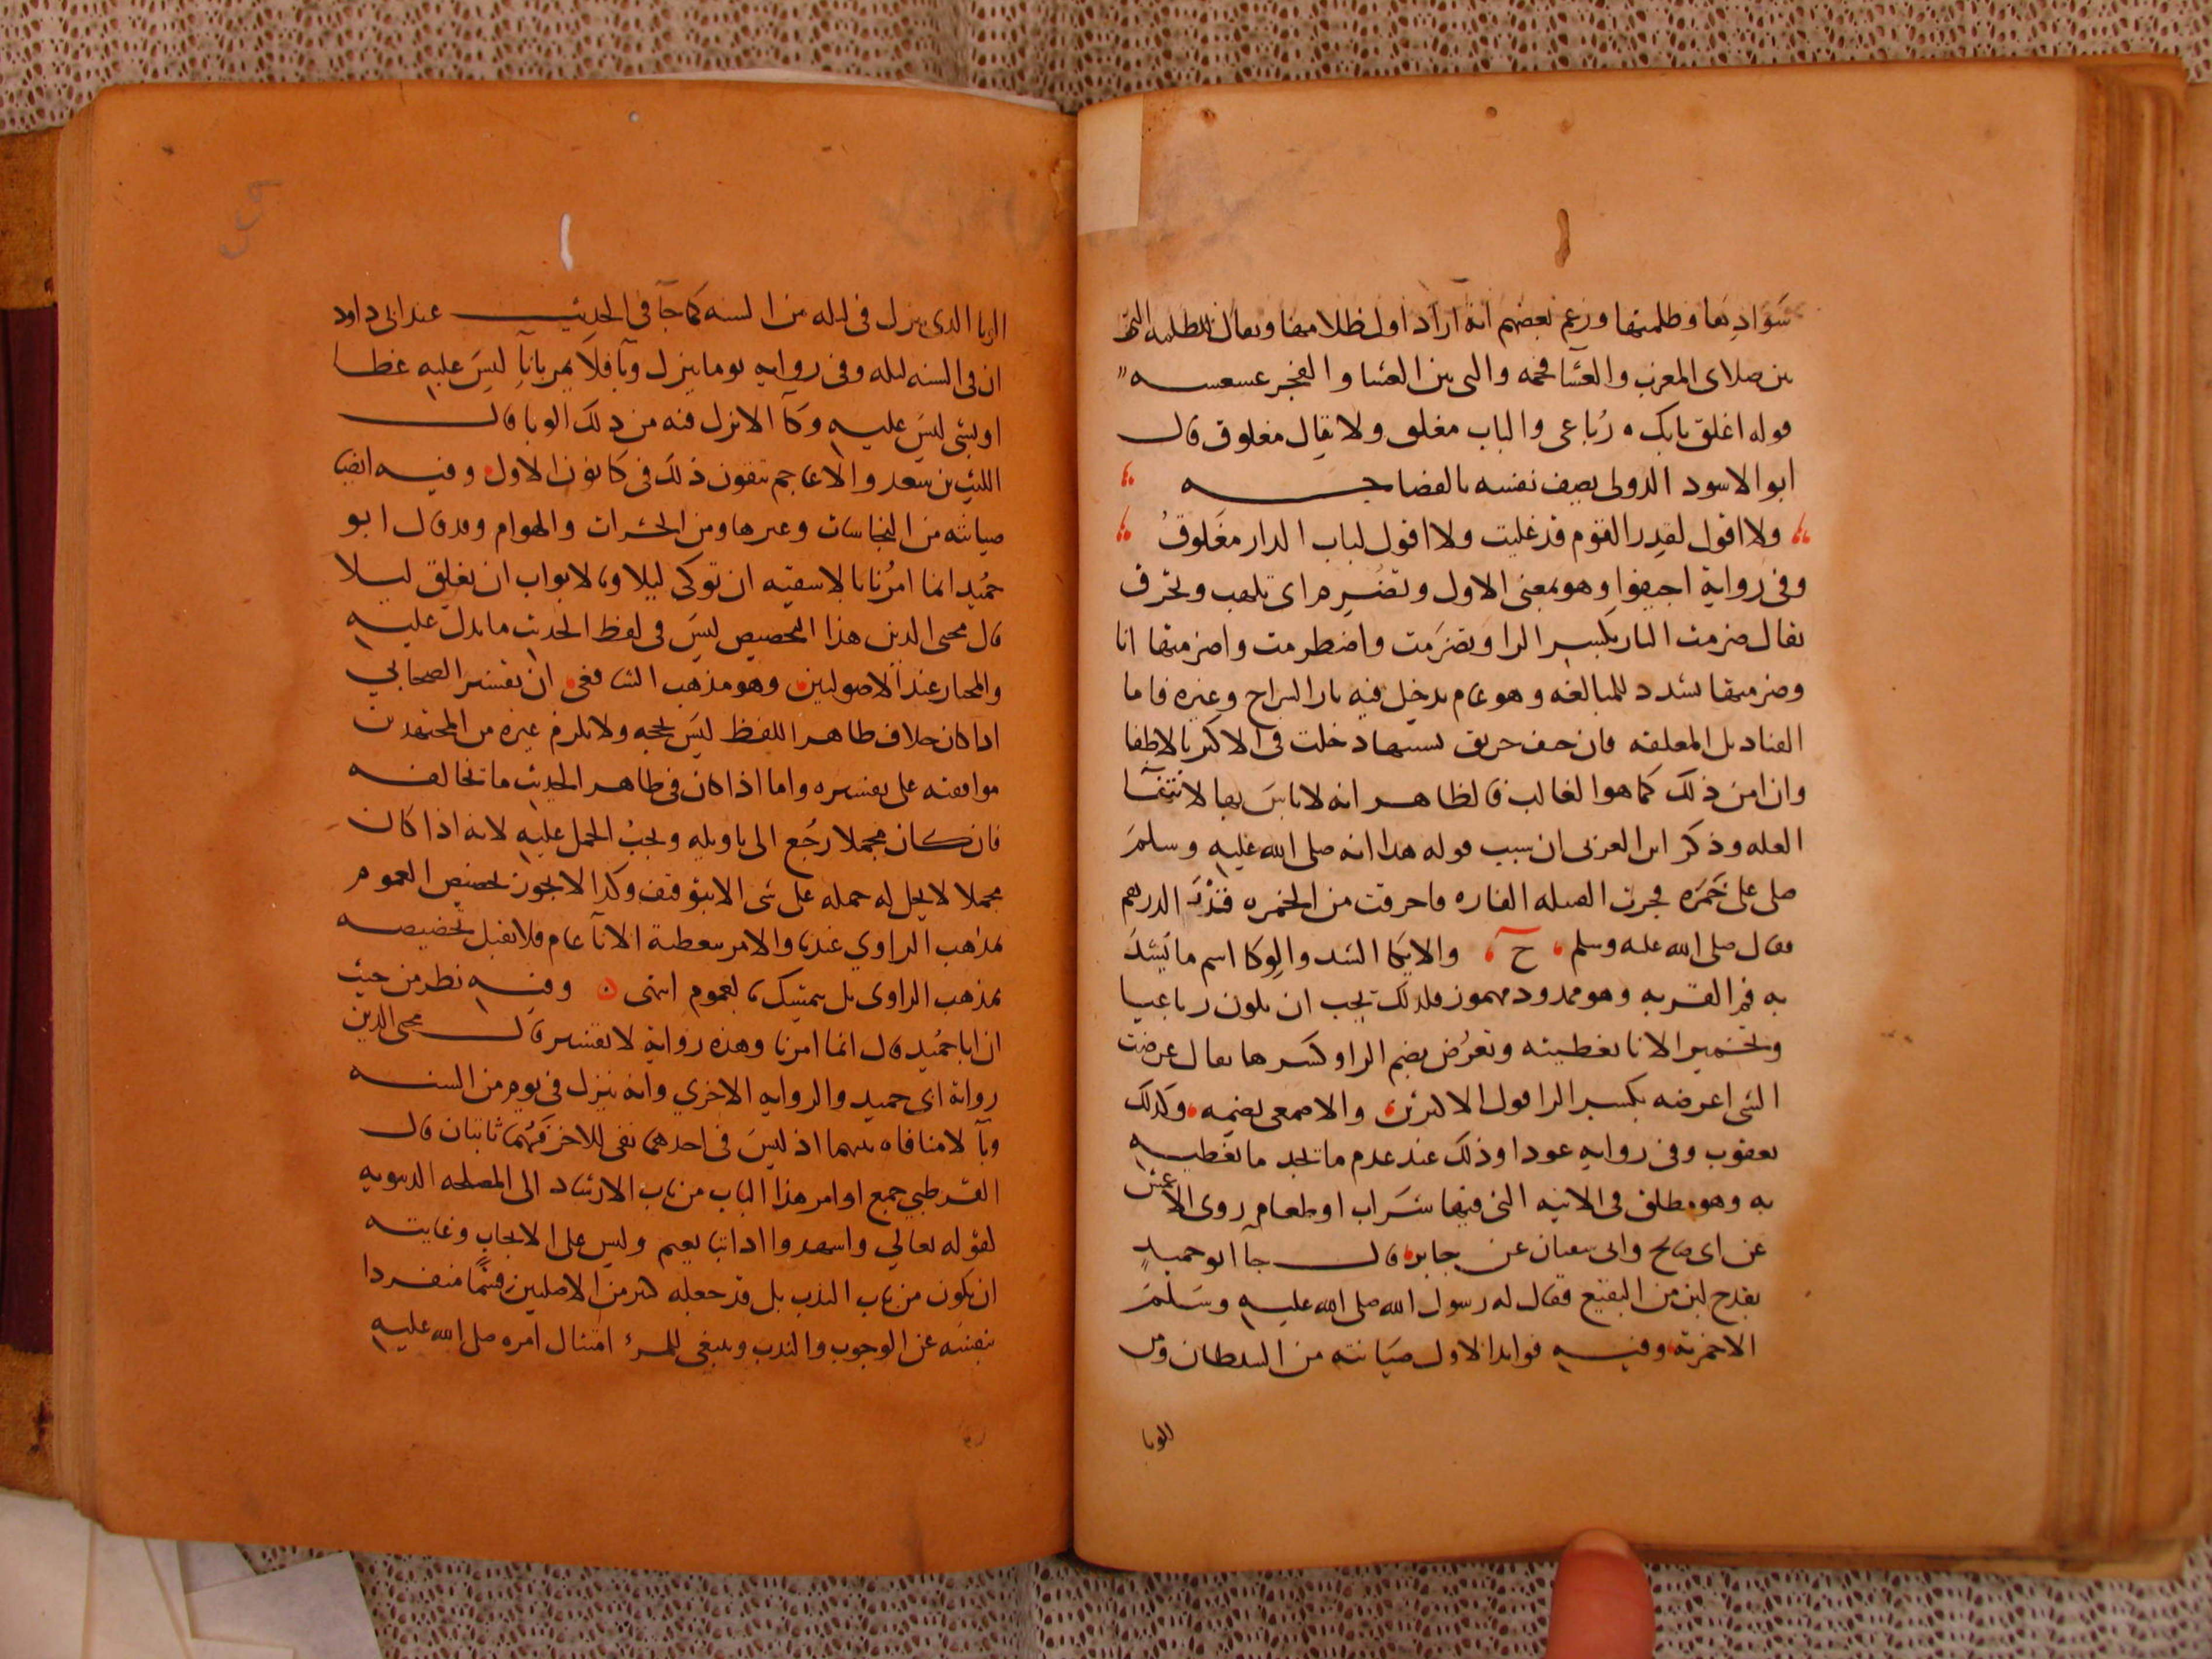 سوادها وظلمتها وزعم بعضهم انه اراد اول ظلامها ويقال للظلمه التي
بين صلاتى المغرب والعشا فحمه والتى بين العشا والفجر عسعسه
قوله اغلق بابك رُباعى والباب مغلق ولا يقال مغلوق قال
ابو الاسود الدولى يصف نفسه بالفصاحه
ولا اقول لقدر القوم قد غليت ولا اقول لباب الدار مغلوقُ
وفى رواية اجيفوا وهو بمعنى الاول وتضرم اى تلهب وتحرق
يقال ضرمت النار بكسر الرا وتضرمت واضطرمت واضرمتها انا
وضرمتها شدد للمبالغه وهو عام يدخل فيه نار السراج وغيره فاما
القناديل المعلقه فان خيف حريق بسببها دخلت فى الامر بالاطفا
وان امن ذلك كما هو الغالب فالظاهر انه لا باس بها لانتفا
العله وذكر ابن العربى ان سبب قوله هذا انه صلى الله عليه وسلم
صلى على خمره فجرت الفتيله الفاره فاحرقت من الخمره قدر الدرهم
فقال صلى الله عليه وسلم ح والايكا الشد والوكا اسم ما يشد
به فم القربه وهو ممدود مهموز فلذلك يجب ان يكون رباعيا
وتخمير الانا تغطيته وتعرُض بضم الرا وكسرها يقال عرضت
الشى اعرضه بكسر الرا قول الاكثرين والاصمعى بضمه وكذلك
يعقوب وفى روايه عودا وذلك عند عدم ما تجد ما تغطيه
به وهو مطلق فى الانيه التى فيها شراب او طعام روى الاعمش
عن ابى صالح وابى سفيان عن جابر قال جآ ابو حميد
بقدح لبن من البقيع فقال له رسول الله صلى الله عليه وسلم
الا خمرته وفيه فوايد الاول صيانته من الشيطان ومن
الوبا
الوبا الذى ينزل فى ليله من السنه كما جآ فى الحديث عند ابى داود
ان فى السنه ليله وفى روايه يوما ينزل وبآ فلا يمر باناٍ ليس عليه غطا
او شى ليس عليه وكآ الا نزل فيه من ذلك الوبا قال
الليث بن سعد والاعاجم تتقون ذلك فى كانون الاول وفيه ايضا
صيانته من النجاسات وغيرها ومن الحشرات والهوام وقد قال ابو
حُميد انما امرُنا بالاسقيه ان توكى ليلا وبالابواب ان تغلق ليلا
قال محيى الدين هذا التخصيص ليس فى لفظ الحديث ما يدل عليه
والمختار عند الاصوليين وهو مذهب الشافعى ان تفسير الصحابي
اذا كان خلاف ظاهر اللفظ ليس بحجه ولا يلزم غيره من المجتهدين
موافقته على تفسيره واما اذا كان فى ظاهر الحديث ما تخالفه
فان كان مجملا رجع الى تاويله ويجب الحمل عليه لانه اذا كان
مجملا لا يحل له حمله على شى الا بتوقيف وكذا لا يجوز تخصيص العموم
بمذهب الراوي عندنا والامر بتغطية الانآ عام فلا تقبل تخصيصه
بمذهب الراوى بل يتمسك بالعموم انتهى ن وفيه نظر من حيث
ان ابا حميد قال انما امرنا وهذه رواية لا تفسير قال محيى الدين
رواية ابى حميد والروايه الاخري وانه ينزل فى يوم من السنه
وبآ لا منافاه بينهما اذ ليس فى احدهما نفى للاخر فهُما ثابتان قال
القرطبي جميع اوامر هذا الباب من باب الارشاد الى المصلحه الدنيويه
لقوله تعالي واشهدوا اذا تبايعتم وليس على الايجاب وغايته
ان يكون من باب الندب بل قد جعله كثير من الاصليين قسمًا منفردا
بنفسه عن الوجوب والندب وينبغى للمرء امتثال امره صلى الله عليه